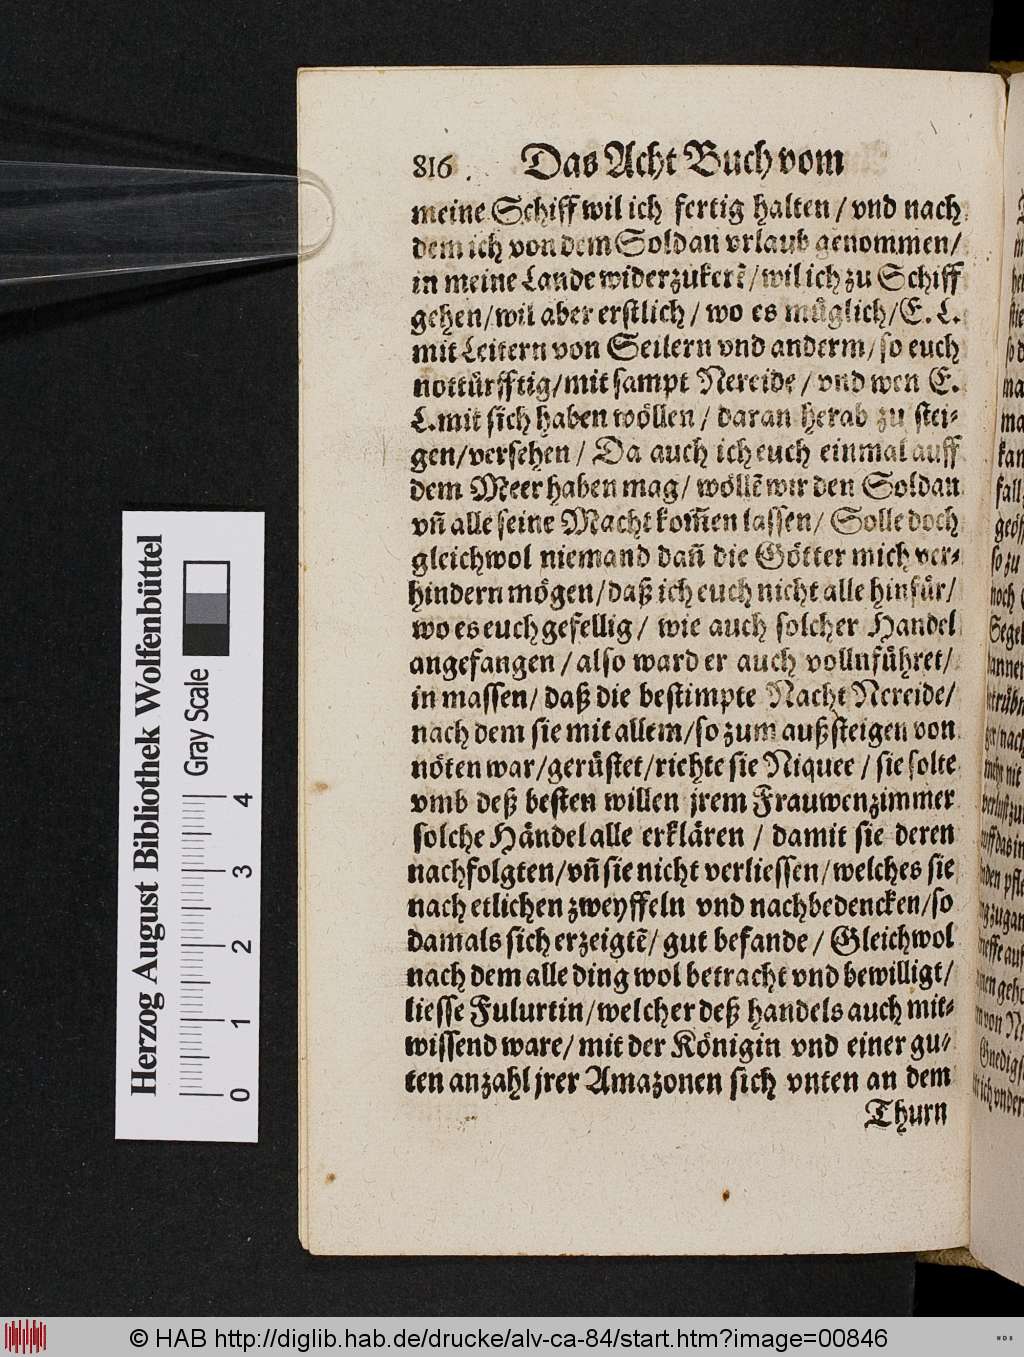 816 . Das Acht Buch vom
meine Schiff wil ich fertig halten / vnd nach
dem ich von dem Soldan vrlaub genommen /
in meine Lande widerzukerẽ / wil ich zu Schiff
gehen / wil aber erstlich / wo es müglich / E. L.
mit Leitern von Seilern vnd anderm / so euch
nottürfftig / mit sampt Nereide / vnd wen E.
L. mit sich haben wöllen / daran herab zu stei-
gen / versehen / Da auch ich euch einmal auff
dem Meer haben mag / wöllẽ wir den Soldan
vñ alle seine Macht kom̃en lassen / Solle doch
gleichwol niemand dañ die Götter mich ver-
hindern mögen / daß ich euch nicht alle hinfür /
wo es euch gefellig / wie auch solcher Handel
angefangen / also ward er auch vollnführet /
in massen / daß die bestimpte Nacht Nereide /
nach dem sie mit allem / so zum außsteigen von
nöten war / gerüstet / richte sie Niquee / sie solte
vmb deß besten willen jrem Frauwenzimmer
solche Händel alle erklären / damit sie deren
nachfolgten / vñ sie nicht verliessen / welches sie
nach etlichen zweyffeln vnd nachbedencken / so
damals sich erzeigtẽ / gut befande / Gleichwol
nach dem alle ding wol betracht vnd bewilligt /
liesse Fulurtin / welcher deß handels auch mit-
wissend ware / mit der Königin vnd einer gu-
ten anzahl jrer Amazonen sich vnten an dem
Thurn
Herzog August Bibliothek Wolfenbüttel
Gray Scale
0 1 2 3 4
© HAB http://diglib.hab.de/drucke/alv-ca-84/start.htm?image=00846